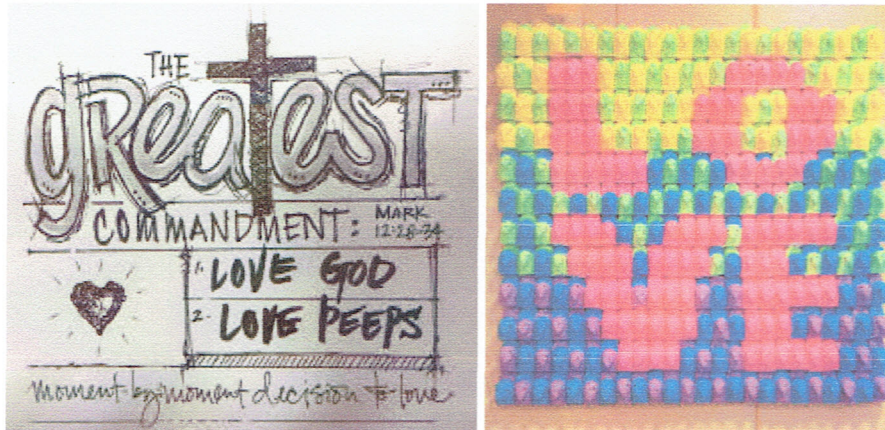 THE
greatesT
COMMANDMENT: MARK 12:28-34
1. LOVE GOD
2. LOVE PEEPS
moment-by-moment decision to love
LO
VE